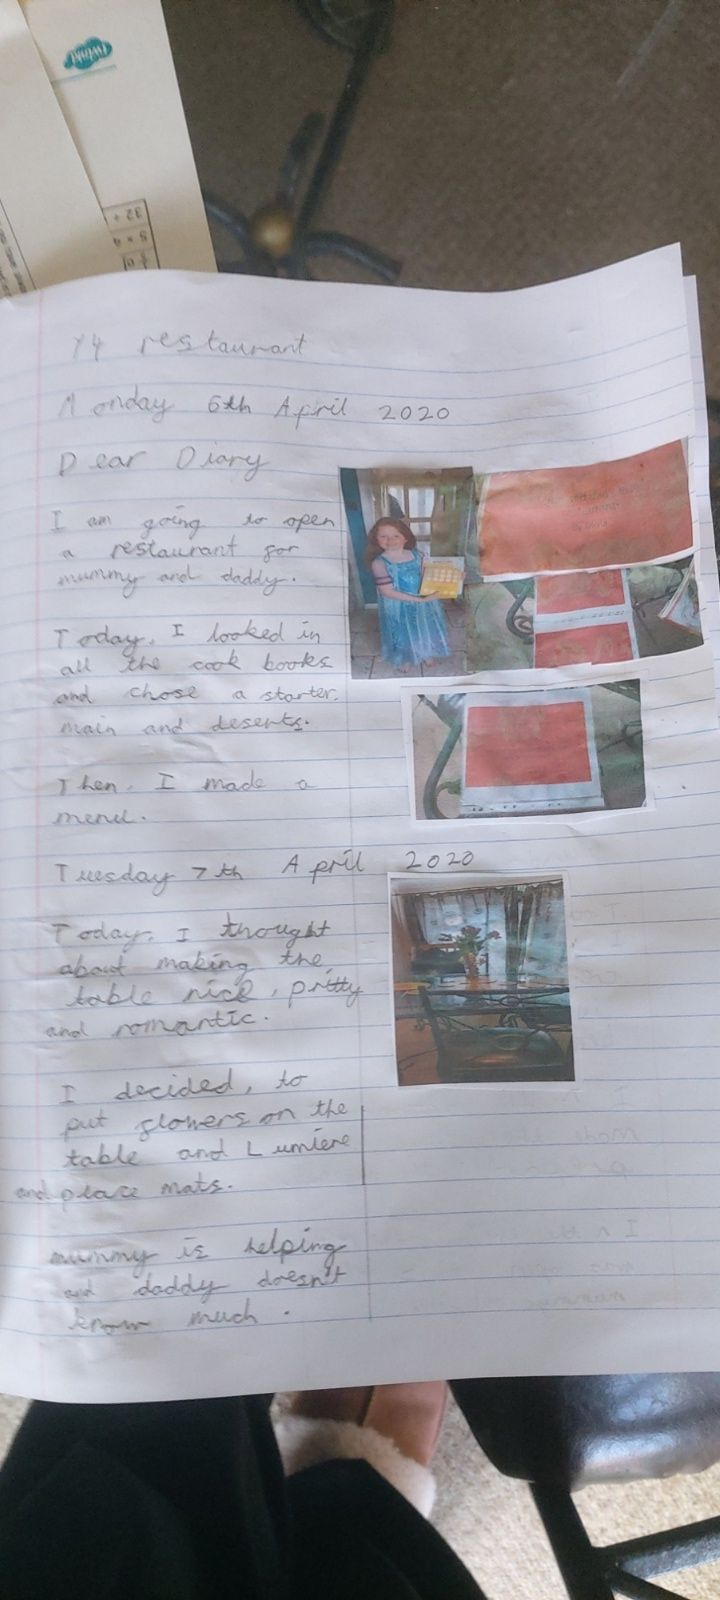 twinkl
32 ÷
5 × 4
Y4 restaurant
Monday 6th April 2020
Dear Diary
I am going to open
a restaurant for
mummy and daddy.
Today, I looked in
all the cook books
and chose a starter,
main and deserts.
Then, I made a
menu.
Tuesday 7th April 2020
Today, I thought
about making the
table nice, pritty
and romantic.
I decided, to
put flowers on the
table and Lumiere
and place mats.
mummy is helping
and daddy doesn't
know much.